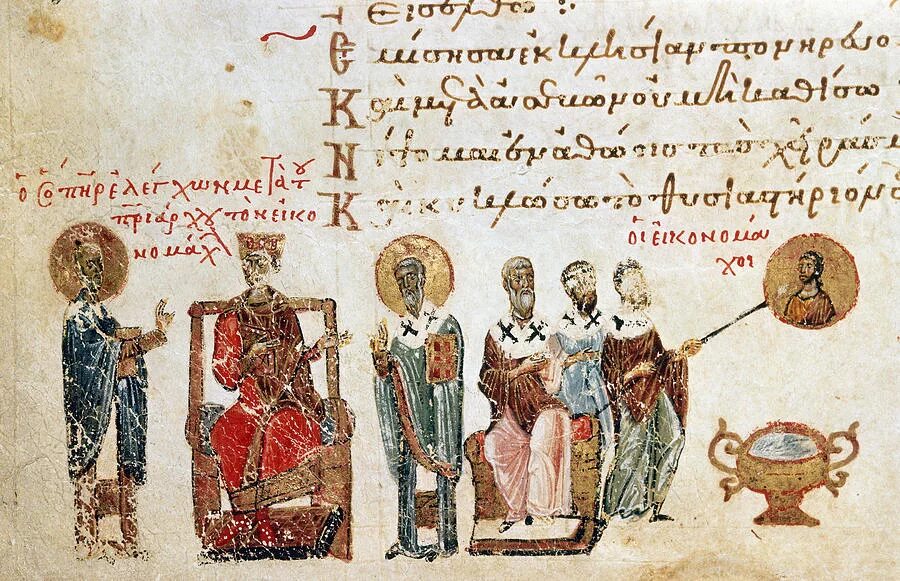 εἰσέλθω :
Ἐμίσησα ἐκκλησίαν πονηρευο
Καὶ μετὰ ἀσεβῶν οὐ μὴ καθίσω
Νίψομαι ἐν ἀθώοις τὰς χεῖράς μ
Καὶ κυκλώσω τὸ θυσιαστήριον
ὁ ὅσ πηρ ἐλέγχων μετὰ τοῦ
πριάρχου τὸν εἰκο
νομάχ
οἱ εἰκονομά
χοι